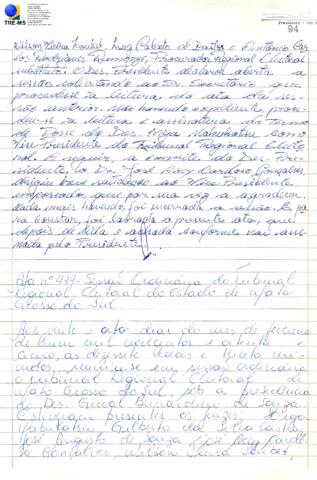 TRE-MS
94
Wilson Vieira Loubet, Luiz Calixto de Bastos e Antônio Car-
los Rodrigues, Procurador Regional Eleitoral
substituto. O Des. Presidente declarou aberta a
sessão solicitando ao Sr. Secretário que
procedesse à leitura da ata da ses-
são anterior. Não havendo expediente, proce-
deu-se à leitura e assinatura do termo
de Posse do Des. Higa Nabukatsu como
Vice-Presidente do Tribunal Regional Eleito-
ral. A seguir, a convite do Des. Pre-
sidente, o Dr. José Rizkallah Cardoso Gonçalves,
dirigiu breve saudação ao Vice-Presidente
empossado, que por sua vez a agradeceu.
Nada mais havendo, foi encerrada a sessão. E, pa-
ra constar, foi lavrada a presente ata, que
depois de lida e aprovada, conforme vai assi-
nada pelo Presidente.
Ata nº 439 - Sessão Ordinária do Tribunal
Regional Eleitoral do Estado de Mato
Grosso do Sul.
Aos vinte e oito dias do mês de fevereiro
de hum mil novecentos e oitenta e
cinco, às dezessete horas e trinta mi-
nutos, reuniu-se em sessão ordinária
o Tribunal Regional Eleitoral de
Mato Grosso do Sul, sob a presidência
do Des. Gerval Bernardino de Souza.
Estiveram presentes os juízes: Higa
Nabukatsu, Gilberto da Silva Castro,
José Augusto de Souza, José Cardo-
so Gonçalves, Wilson Vieira Loubet,